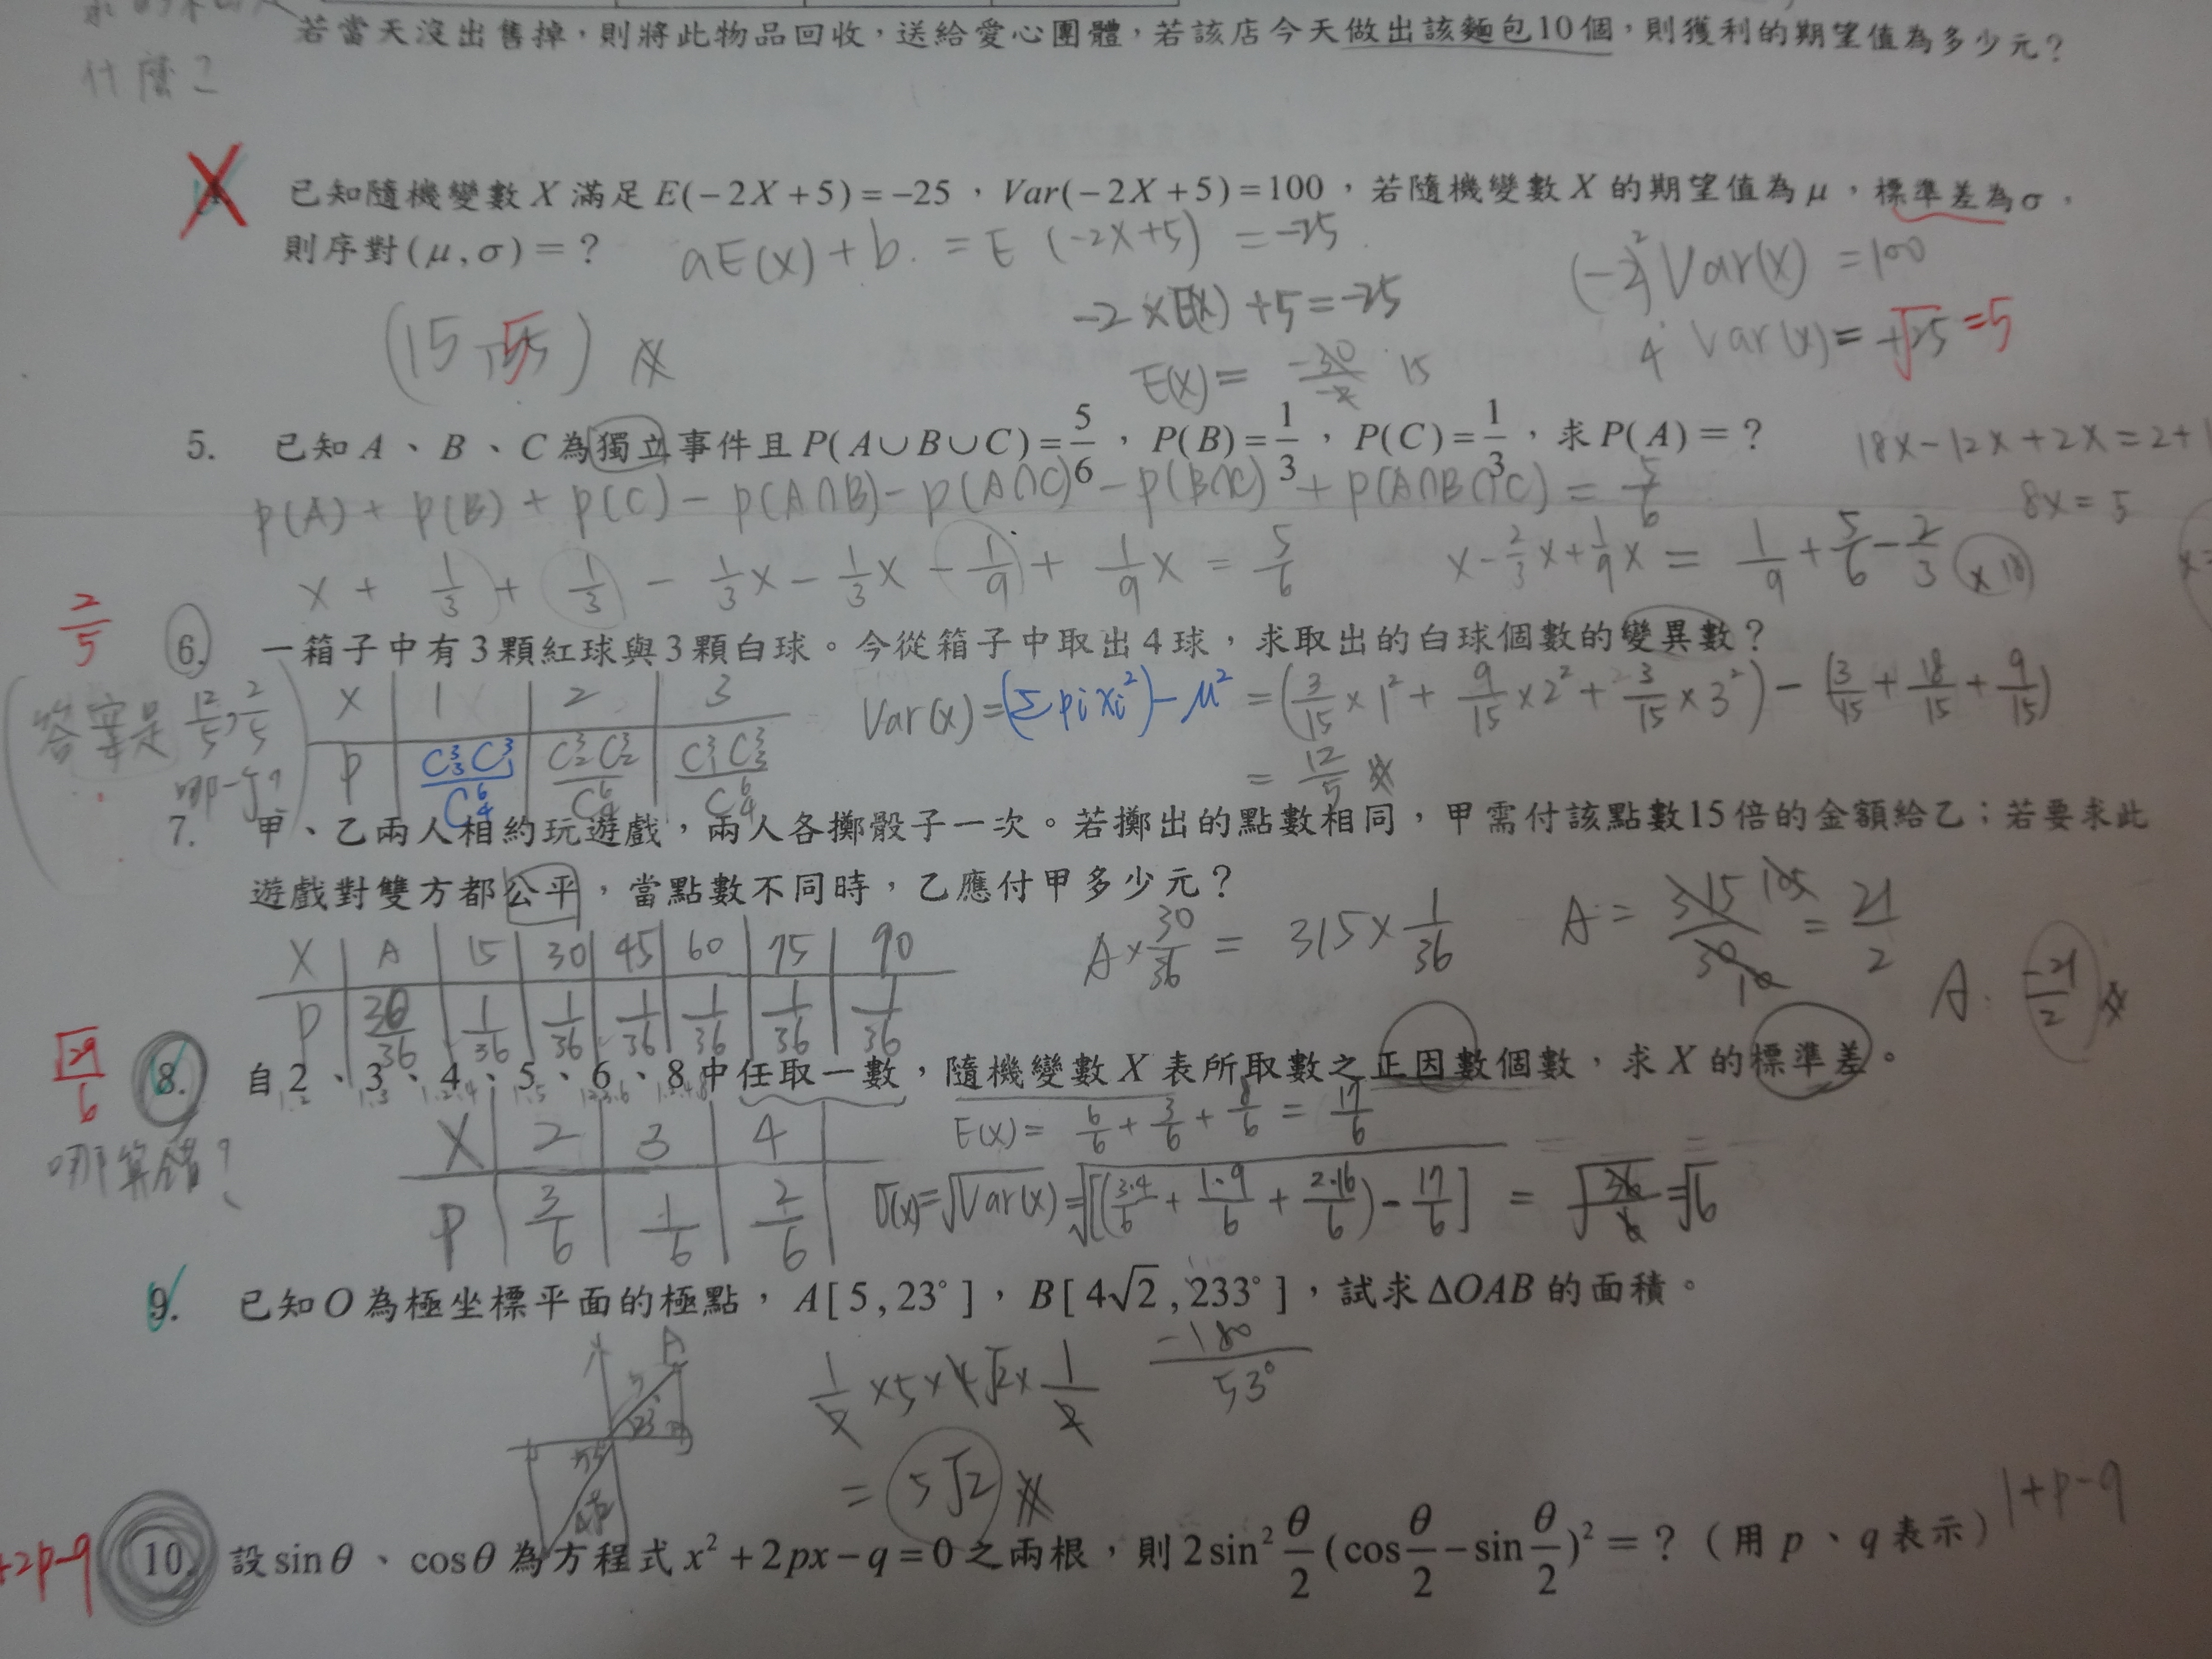 若當天沒出售掉，則將此物品回收，送給愛心團體，若該店今天做出該麵包10個，則獲利的期望值為多少元？
什麼？
已知隨機變數 X 滿足 E(−2X+5)=−25，Var(−2X+5)=100，若隨機變數 X 的期望值為 μ，標準差為 σ，
則序對(μ,σ)=？ aE(X)+b = E (-2X+5) = -25
(-2)² Var(X) = 100
-2×E(X)+5=-25
(15,5)
4 Var(X)= √25 =5
E(X)= -30/-2 15
5. 已知 A、B、C 為獨立事件且 P(A∪B∪C)=5/6，P(B)=1/3，P(C)=1/3，求 P(A)=？
18x-12x+2x=2+1
P(A)+P(B)+P(C)-P(A∩B)-P(A∩C)-P(B∩C)+P(A∩B∩C)=5/6
8x=5
x+1/3+1/3-1/3x-1/3x-1/9+1/9x=5/6 x-2/3x+1/9x=1/9+5/6-2/3 (×18)
2/5
6. 一箱子中有3顆紅球與3顆白球。今從箱子中取出4球，求取出的白球個數的變異數？
答案是 12/5, 2/5
哪一個？
X 1 2 3
P C³₃C³₁/C⁶₄ C³₂C³₂/C⁶₄ C³₁C³₃/C⁶₄
Var(x)=(Σpixi²)-μ² =(3/15×1²+9/15×2²+3/15×3²)-(3/15+18/15+9/15)
= 12/5
7. 甲、乙兩人相約玩遊戲，兩人各擲骰子一次。若擲出的點數相同，甲需付該點數15倍的金額給乙；若要求此
遊戲對雙方都公平，當點數不同時，乙應付甲多少元？
X A 15 30 45 60 75 90
P 30/36 1/36 1/36 1/36 1/36 1/36 1/36
A×30/36 = 315×1/36 A = 315/30 105 10 = 21/2
A: -21/2
√29/6
8. 自 2、3、4、5、6、8 中任取一數，隨機變數 X 表所取數之正因數個數，求 X 的標準差。
1.2 1.3 1.2.4 1.5 1.2.3.6 1.2.4.8
哪算錯？
X 2 3 4
P 3/6 1/6 2/6
E(X)= 6/6+3/6+8/6 = 17/6
σ(x)=√Var(x)=√[(3·4/6+1·9/6+2·16/6)-17/6] = √36/6 =√6
9. 已知 O 為極坐標平面的極點，A[5,23°]，B[4√2,233°]，試求 ΔOAB 的面積。
-180
53°
1/2×5×4√2×1/2
= 5√2
1+p-q
+2p-q
10. 設 sinθ、cosθ 為方程式 x²+2px−q=0 之兩根，則 2sin² θ/2 (cos θ/2 − sin θ/2)² =？（用 p、q 表示）